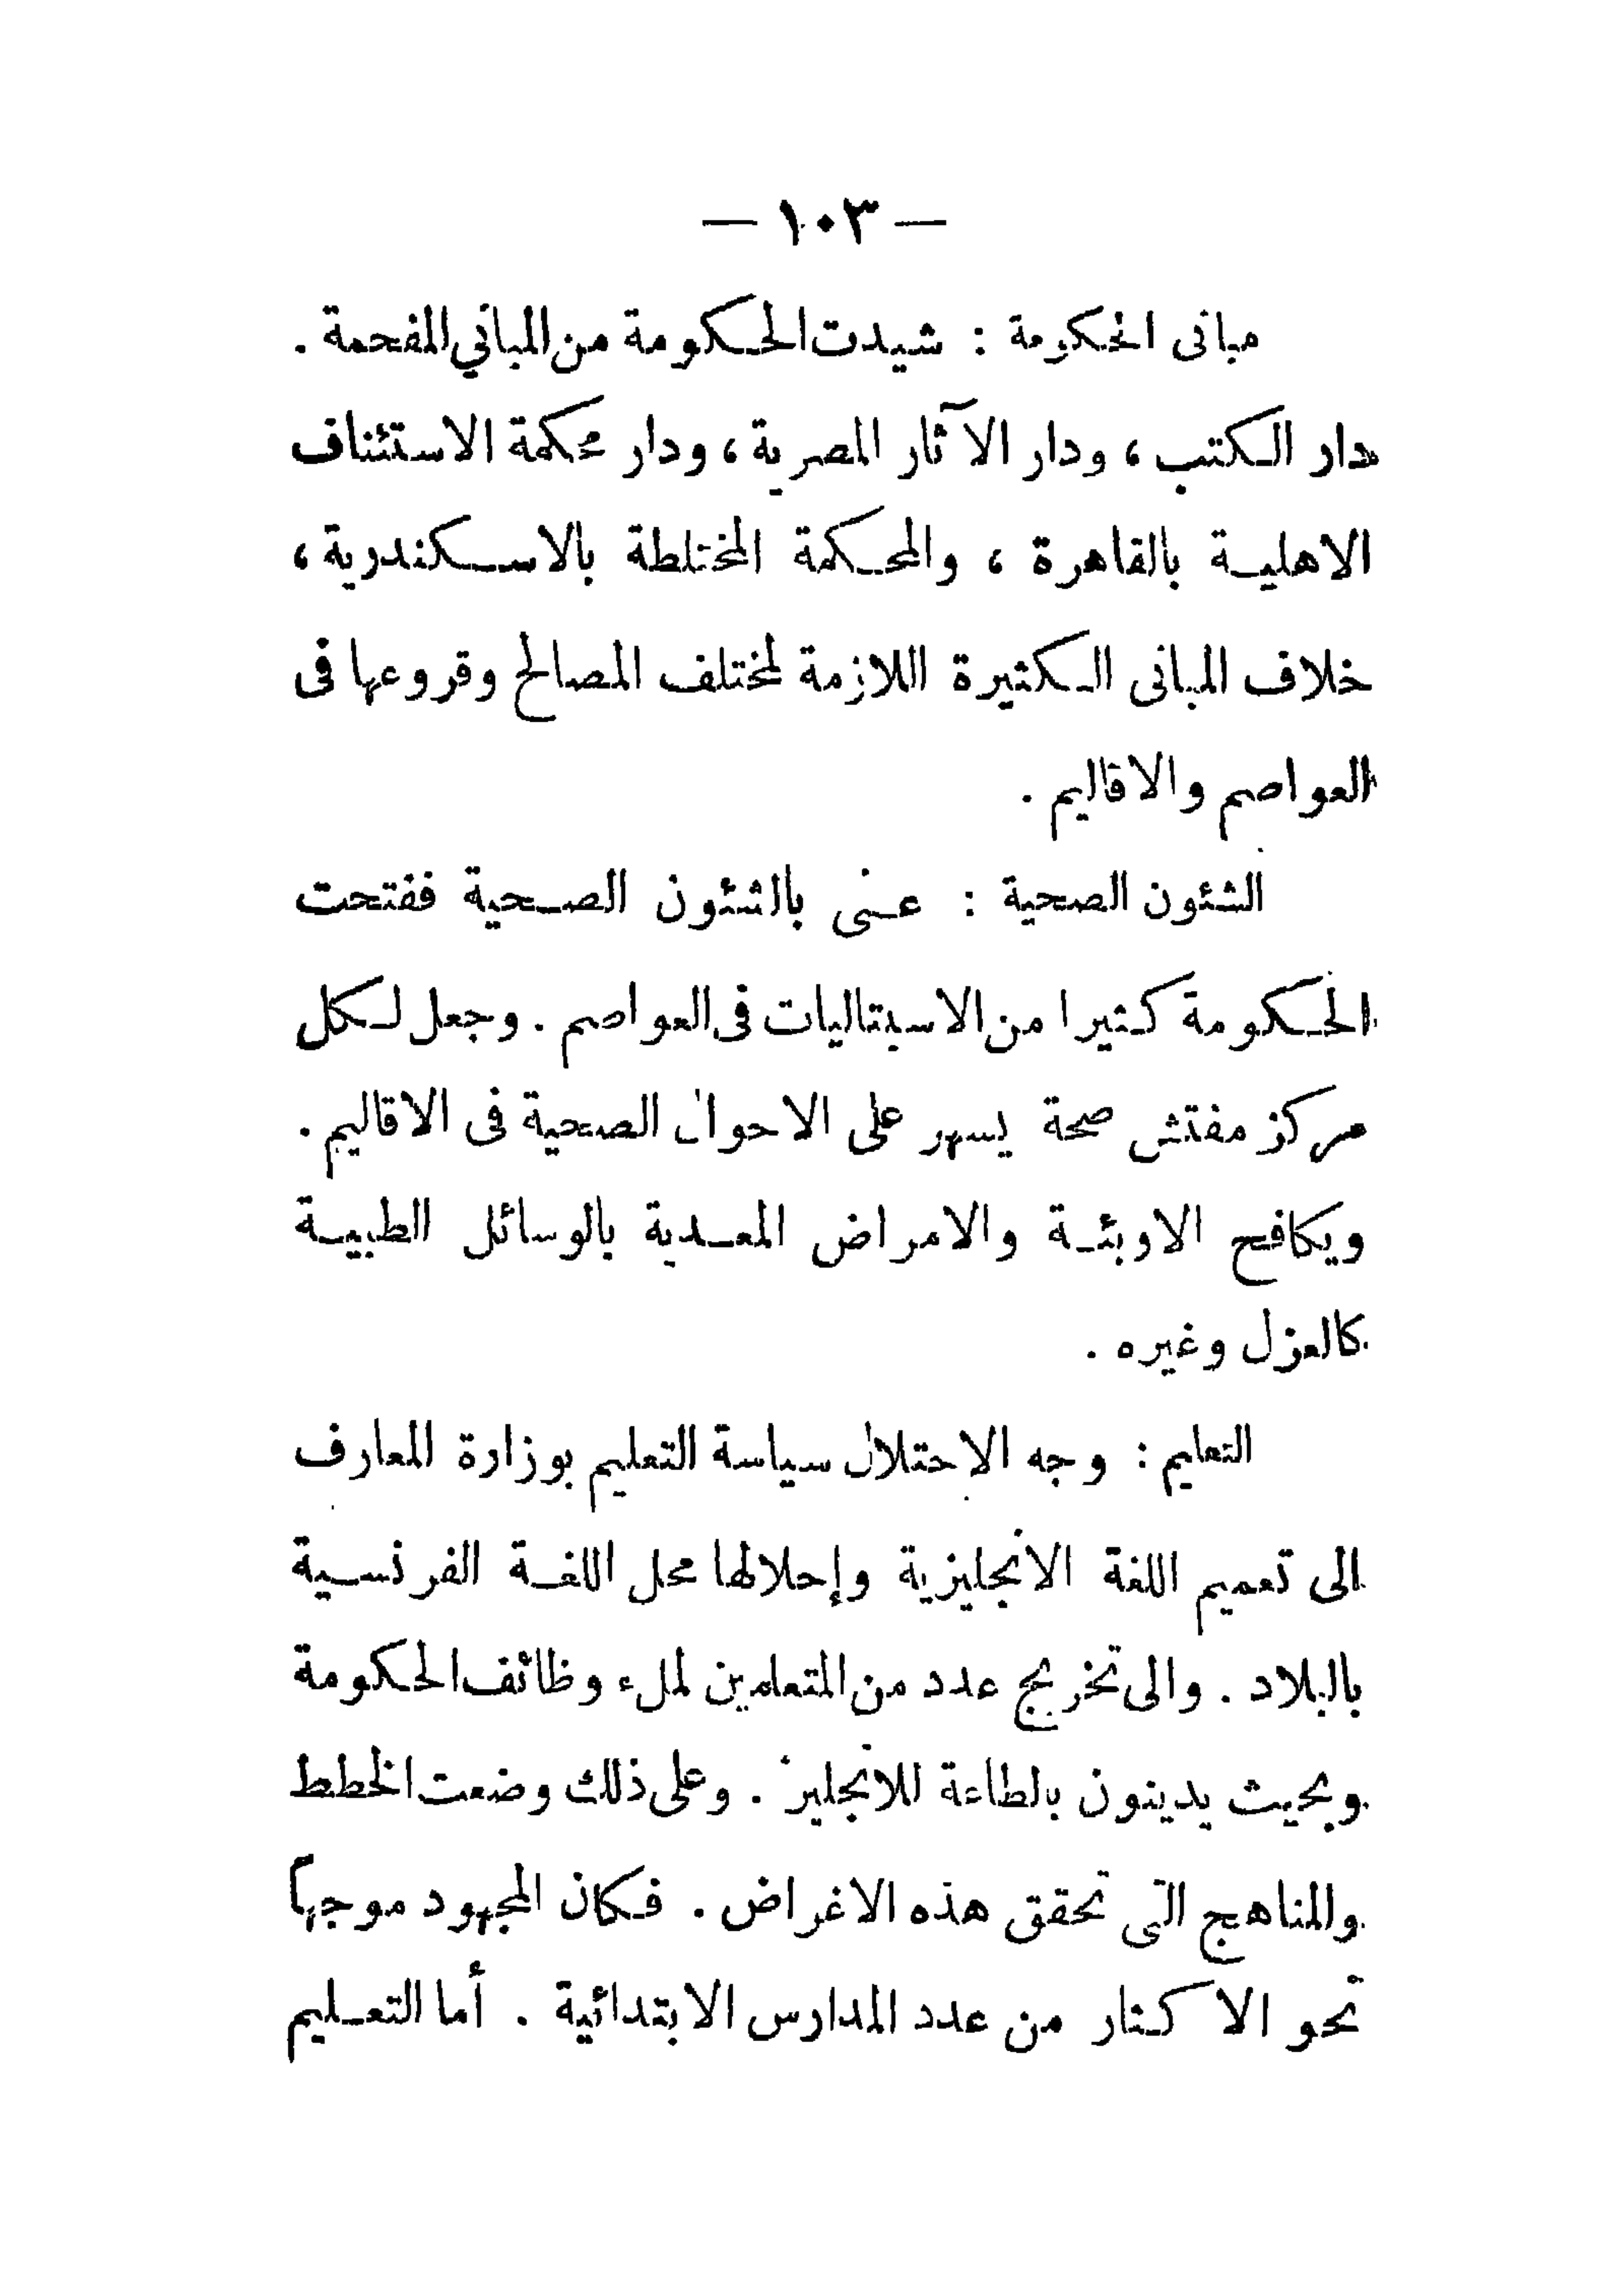 — ١٠٣ —
مبانى الحكومة : شيدت الحكومة من المباني المفحمة .
دار الكتب ، ودار الآثار المصرية ، ودار محكمة الاستئناف
الاهلية بالقاهرة ، والمحكمة المختلطة بالاسكندرية ،
خلاف المبانى الكثيرة اللازمة لمختلف المصالح وقروعها فى
العواصم والاقاليم .
الشئون الصحية : عنى بالشئون الصحية ففتحت
الحكومة كثيرا من الاسبتاليات فى العواصم . وجعل لكل
مركز مفتش صحة يسهر على الاحوال الصحية فى الاقاليم .
ويكافح الاوبئة والامراض المعدية بالوسائل الطبية
كالعزل وغيره .
التعليم : وجه الاحتلال سياسة التعليم بوزارة المعارف
الى تعميم اللغة الانجليزية وإحلالها محل اللغة الفرنسية
بالبلاد . والى تخريج عدد من المتعلمين لملء وظائف الحكومة
وبحيث يدينون بالطاعة للانجليز . وعلى ذلك وضعت الخطط
والمناهج التى تحقق هذه الاغراض . فكان المجهود موجهاً
نحو الاكثار من عدد المدارس الابتدائية . أما التعليم